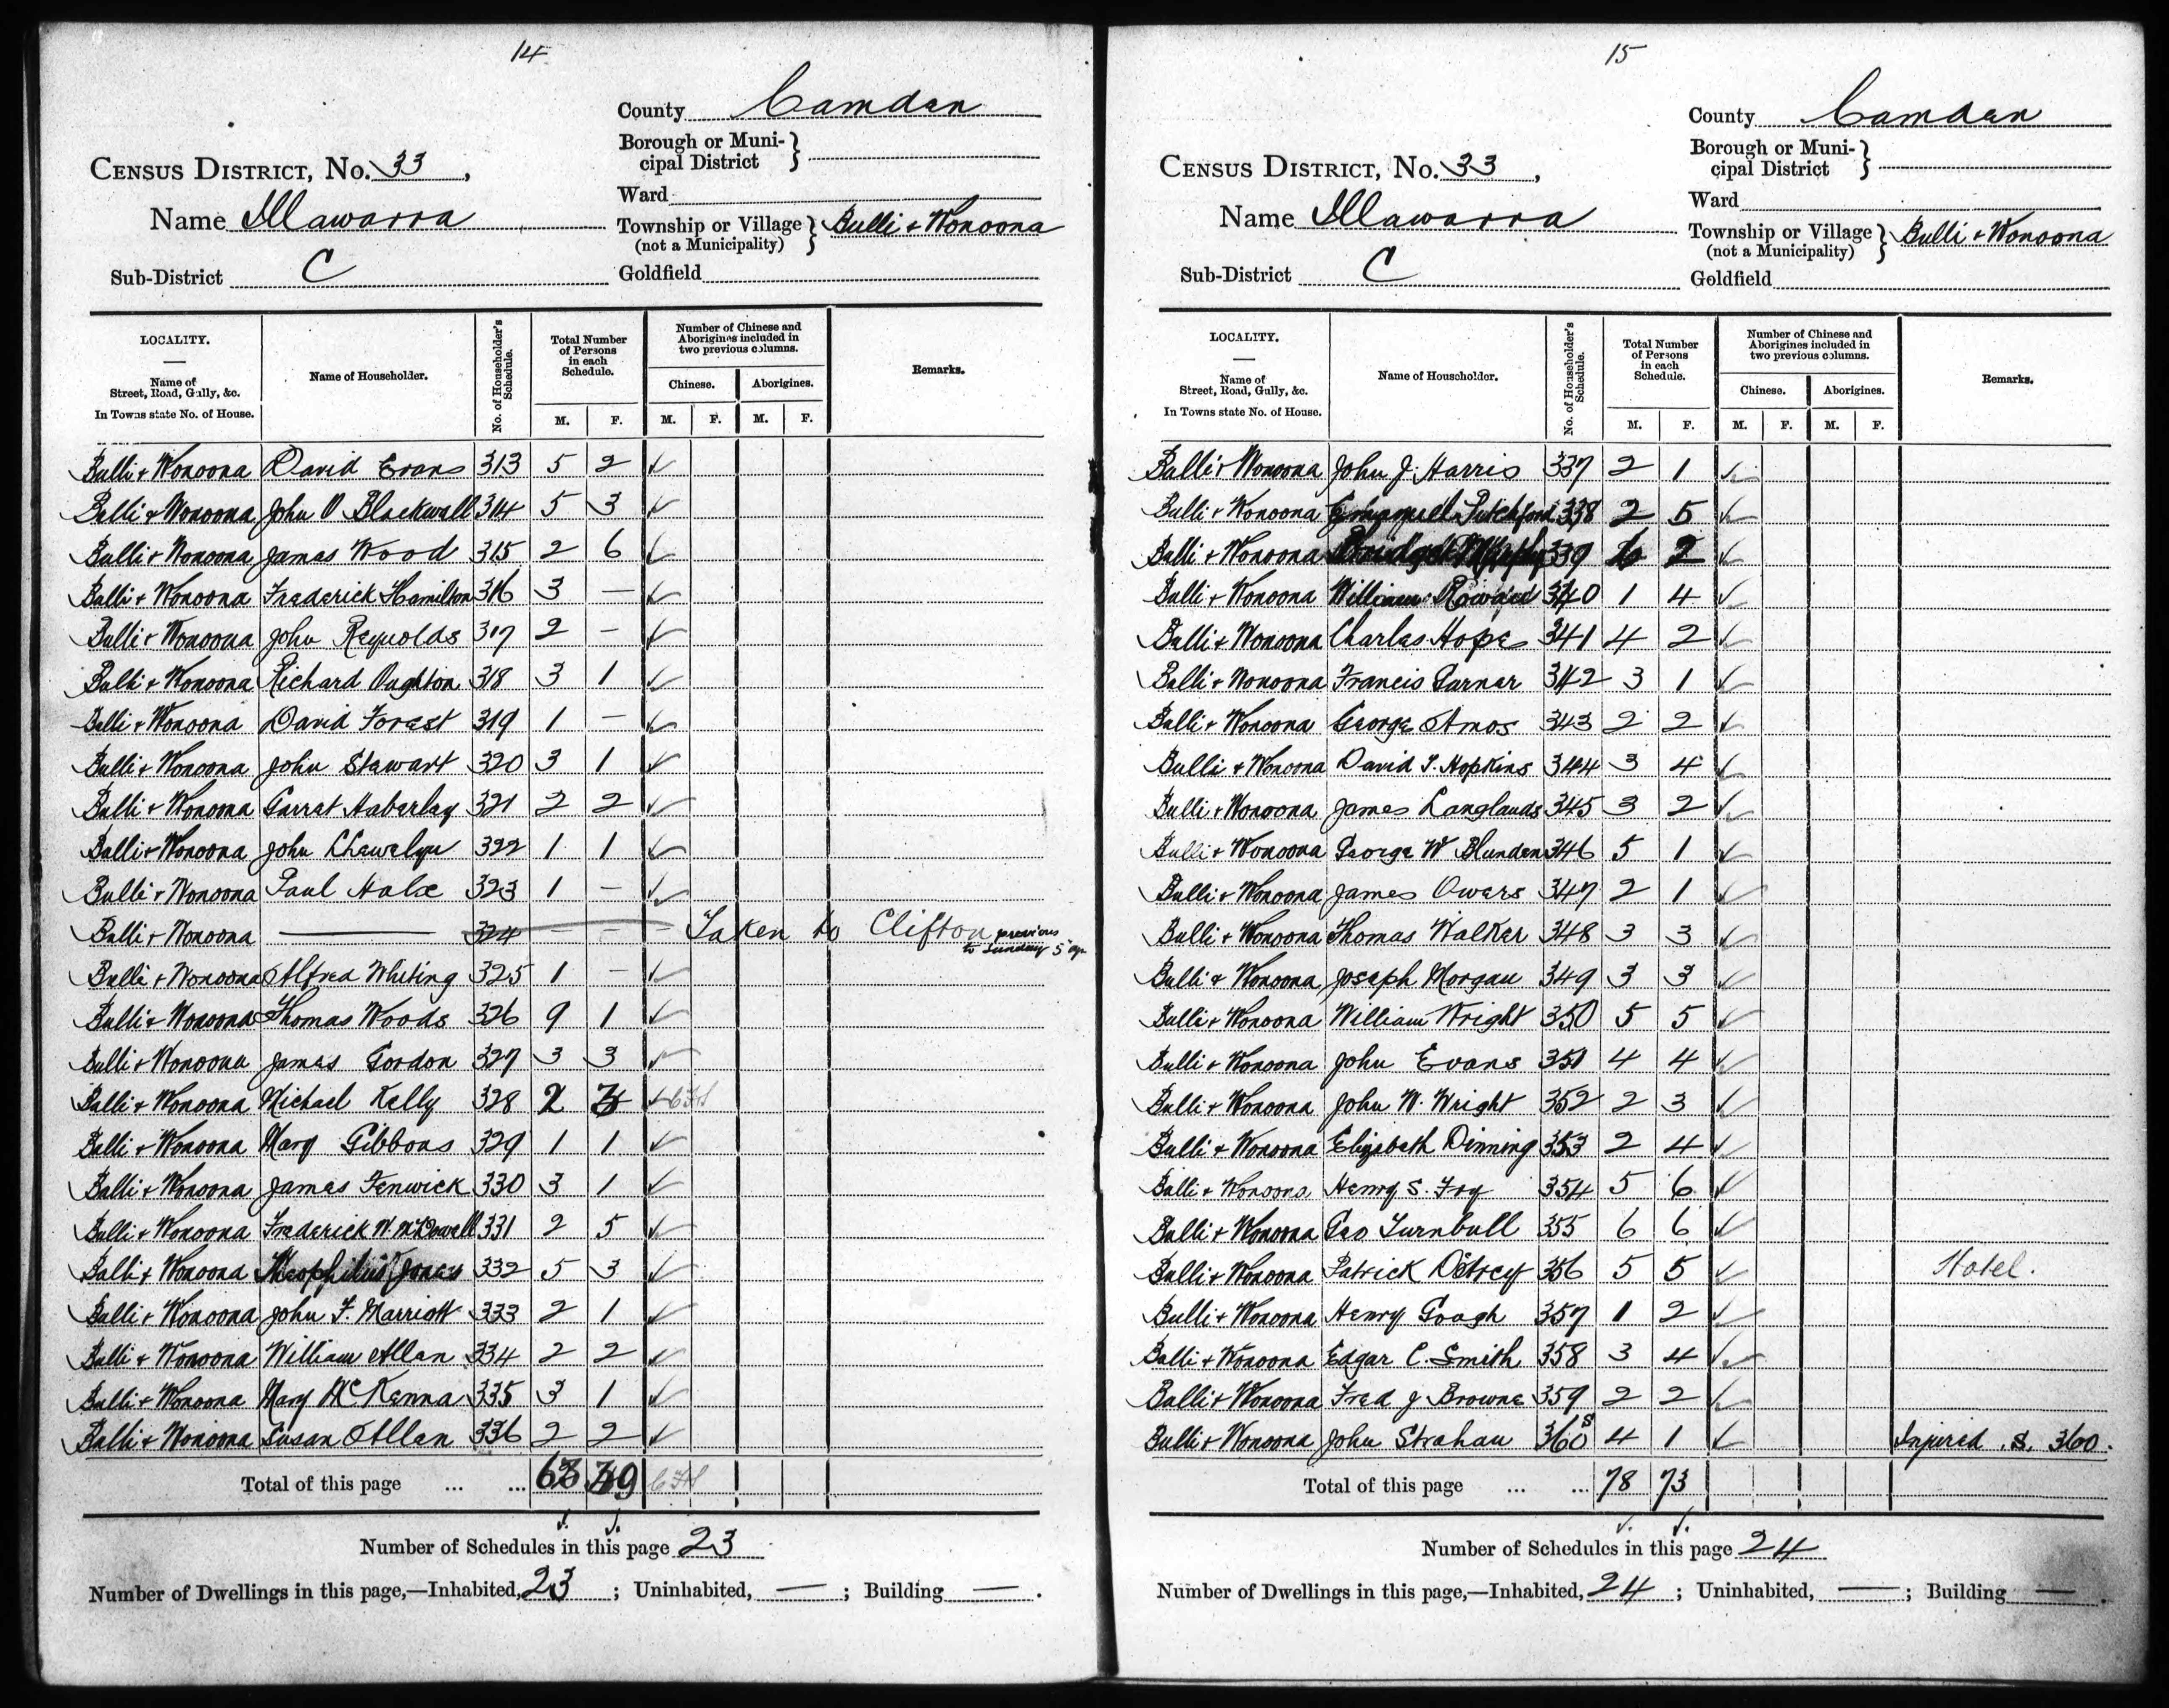 14
County Camden
Borough or Muni-
cipal District }
CENSUS DISTRICT, No. 33,
Ward
Name Illawarra
Township or Village } Bulli & Wonoona
(not a Municipality)
Sub-District C
Goldfield
LOCALITY.
Name of
Street, Road, Gully, &c.
In Towns state No. of House.
Name of Householder.
No. of Householder's Schedule.
Total Number
of Persons
in each
Schedule.
M. F.
Number of Chinese and
Aborigines included in
two previous columns.
Chinese. Aborigines.
M. F. M. F.
Remarks.
Bulli + Wonoona David Evans 313 5 2 ✓
Bulli + Wonoona John O Blackwall 314 5 3 ✓
Bulli + Wonoona James Wood 315 2 6 ✓
Bulli + Wonoona Frederick Hamilton 316 3 — ✓
Bulli + Wonoona John Reynolds 317 2 — ✓
Bulli + Wonoona Richard Oughton 318 3 1 ✓
Bulli + Wonoona David Forest 319 1 — ✓
Bulli + Wonoona John Stewart 320 3 1 ✓
Bulli + Wonoona Garrat Haberley 321 2 2 ✓
Bulli + Wonoona John 322 1 1 ✓
Bulli + Wonoona Paul Hale 323 1 — ✓
Bulli + Wonoona — 324 — — Taken to Clifton previous
to Sunday 5 ap
Bulli + Wonoona Alfred Whiting 325 1 — ✓
Bulli + Wonoona Thomas Woods 326 9 1 ✓
Bulli + Wonoona James Gordon 327 3 3 ✓
Bulli + Wonoona Michael Kelly 328 2 ✓
Bulli + Wonoona Mary Gibbons 329 1 1 ✓
Bulli + Wonoona James Fenwick 330 3 1 ✓
Bulli + Wonoona Frederick W. 331 2 5 ✓
Bulli + Wonoona Theophilus Jones 332 5 3 ✓
Bulli + Wonoona John F. Marriott 333 2 1 ✓
Bulli + Wonoona William Allan 334 2 2 ✓
Bulli + Wonoona Mary McKenna 335 3 1 ✓
Bulli + Wonoona Susan Allan 336 2 2 ✓
Total of this page ... ...
Number of Schedules in this page 23
Number of Dwellings in this page,—Inhabited, 23; Uninhabited, —; Building —.
15
County Camden
Borough or Muni-
cipal District }
CENSUS DISTRICT, No. 33,
Ward
Name Illawarra
Township or Village } Bulli + Wonoona
(not a Municipality)
Sub-District C
Goldfield
LOCALITY.
Name of
Street, Road, Gully, &c.
In Towns state No. of House.
Name of Householder.
No. of Householder's Schedule.
Total Number
of Persons
in each
Schedule.
M. F.
Number of Chinese and
Aborigines included in
two previous columns.
Chinese. Aborigines.
M. F. M. F.
Remarks.
Bulli + Wonoona John J. Harris 337 2 1 ✓
Bulli + Wonoona Emanuel Pitchford 338 2 5 ✓
Bulli + Wonoona 339 2 ✓
Bulli + Wonoona William 340 1 4 ✓
Bulli + Wonoona Charles Hope 341 4 2 ✓
Bulli + Wonoona Francis 342 3 1 ✓
Bulli + Wonoona George Amos 343 2 2 ✓
Bulli + Wonoona David T. Hopkins 344 3 4 ✓
Bulli + Wonoona James Langlands 345 3 2 ✓
Bulli + Wonoona George W Blunden 346 5 1 ✓
Bulli + Wonoona James Owers 347 2 1 ✓
Bulli + Wonoona Thomas Walker 348 3 3 ✓
Bulli + Wonoona Joseph Morgan 349 3 3 ✓
Bulli + Wonoona William Wright 350 5 5 ✓
Bulli + Wonoona John Evans 351 4 4 ✓
Bulli + Wonoona John W. Wright 352 2 3 ✓
Bulli + Wonoona Elizabeth Dinning 353 2 4 ✓
Bulli + Wonoona Henry S. Fry 354 5 6 ✓
Bulli + Wonoona Geo Turnbull 355 6 6 ✓
Bulli + Wonoona Patrick 356 5 5 ✓ Hotel.
Bulli + Wonoona Henry Gough 357 1 2 ✓
Bulli + Wonoona Edgar C. Smith 358 3 4 ✓
Bulli + Wonoona Fred J Browne 359 2 2 ✓
Bulli + Wonoona John Strahan 360 S 4 1 ✓ Injured .S. 360.
Total of this page ... ... 78 73
Number of Schedules in this page 24
Number of Dwellings in this page,—Inhabited, 24; Uninhabited, —; Building —.